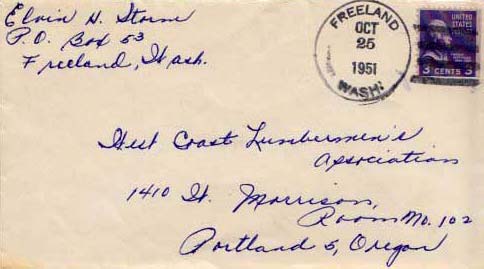 Elvin H. Storm
P.O. Box 53
Freeland, Wash.
FREELAND
OCT
25
1951
WASH.
UNITED
STATES
3 CENTS 3
West Coast Lumbermen's
Association
1410 St. Morrison,
Room No. 102
Portland 5, Oregon